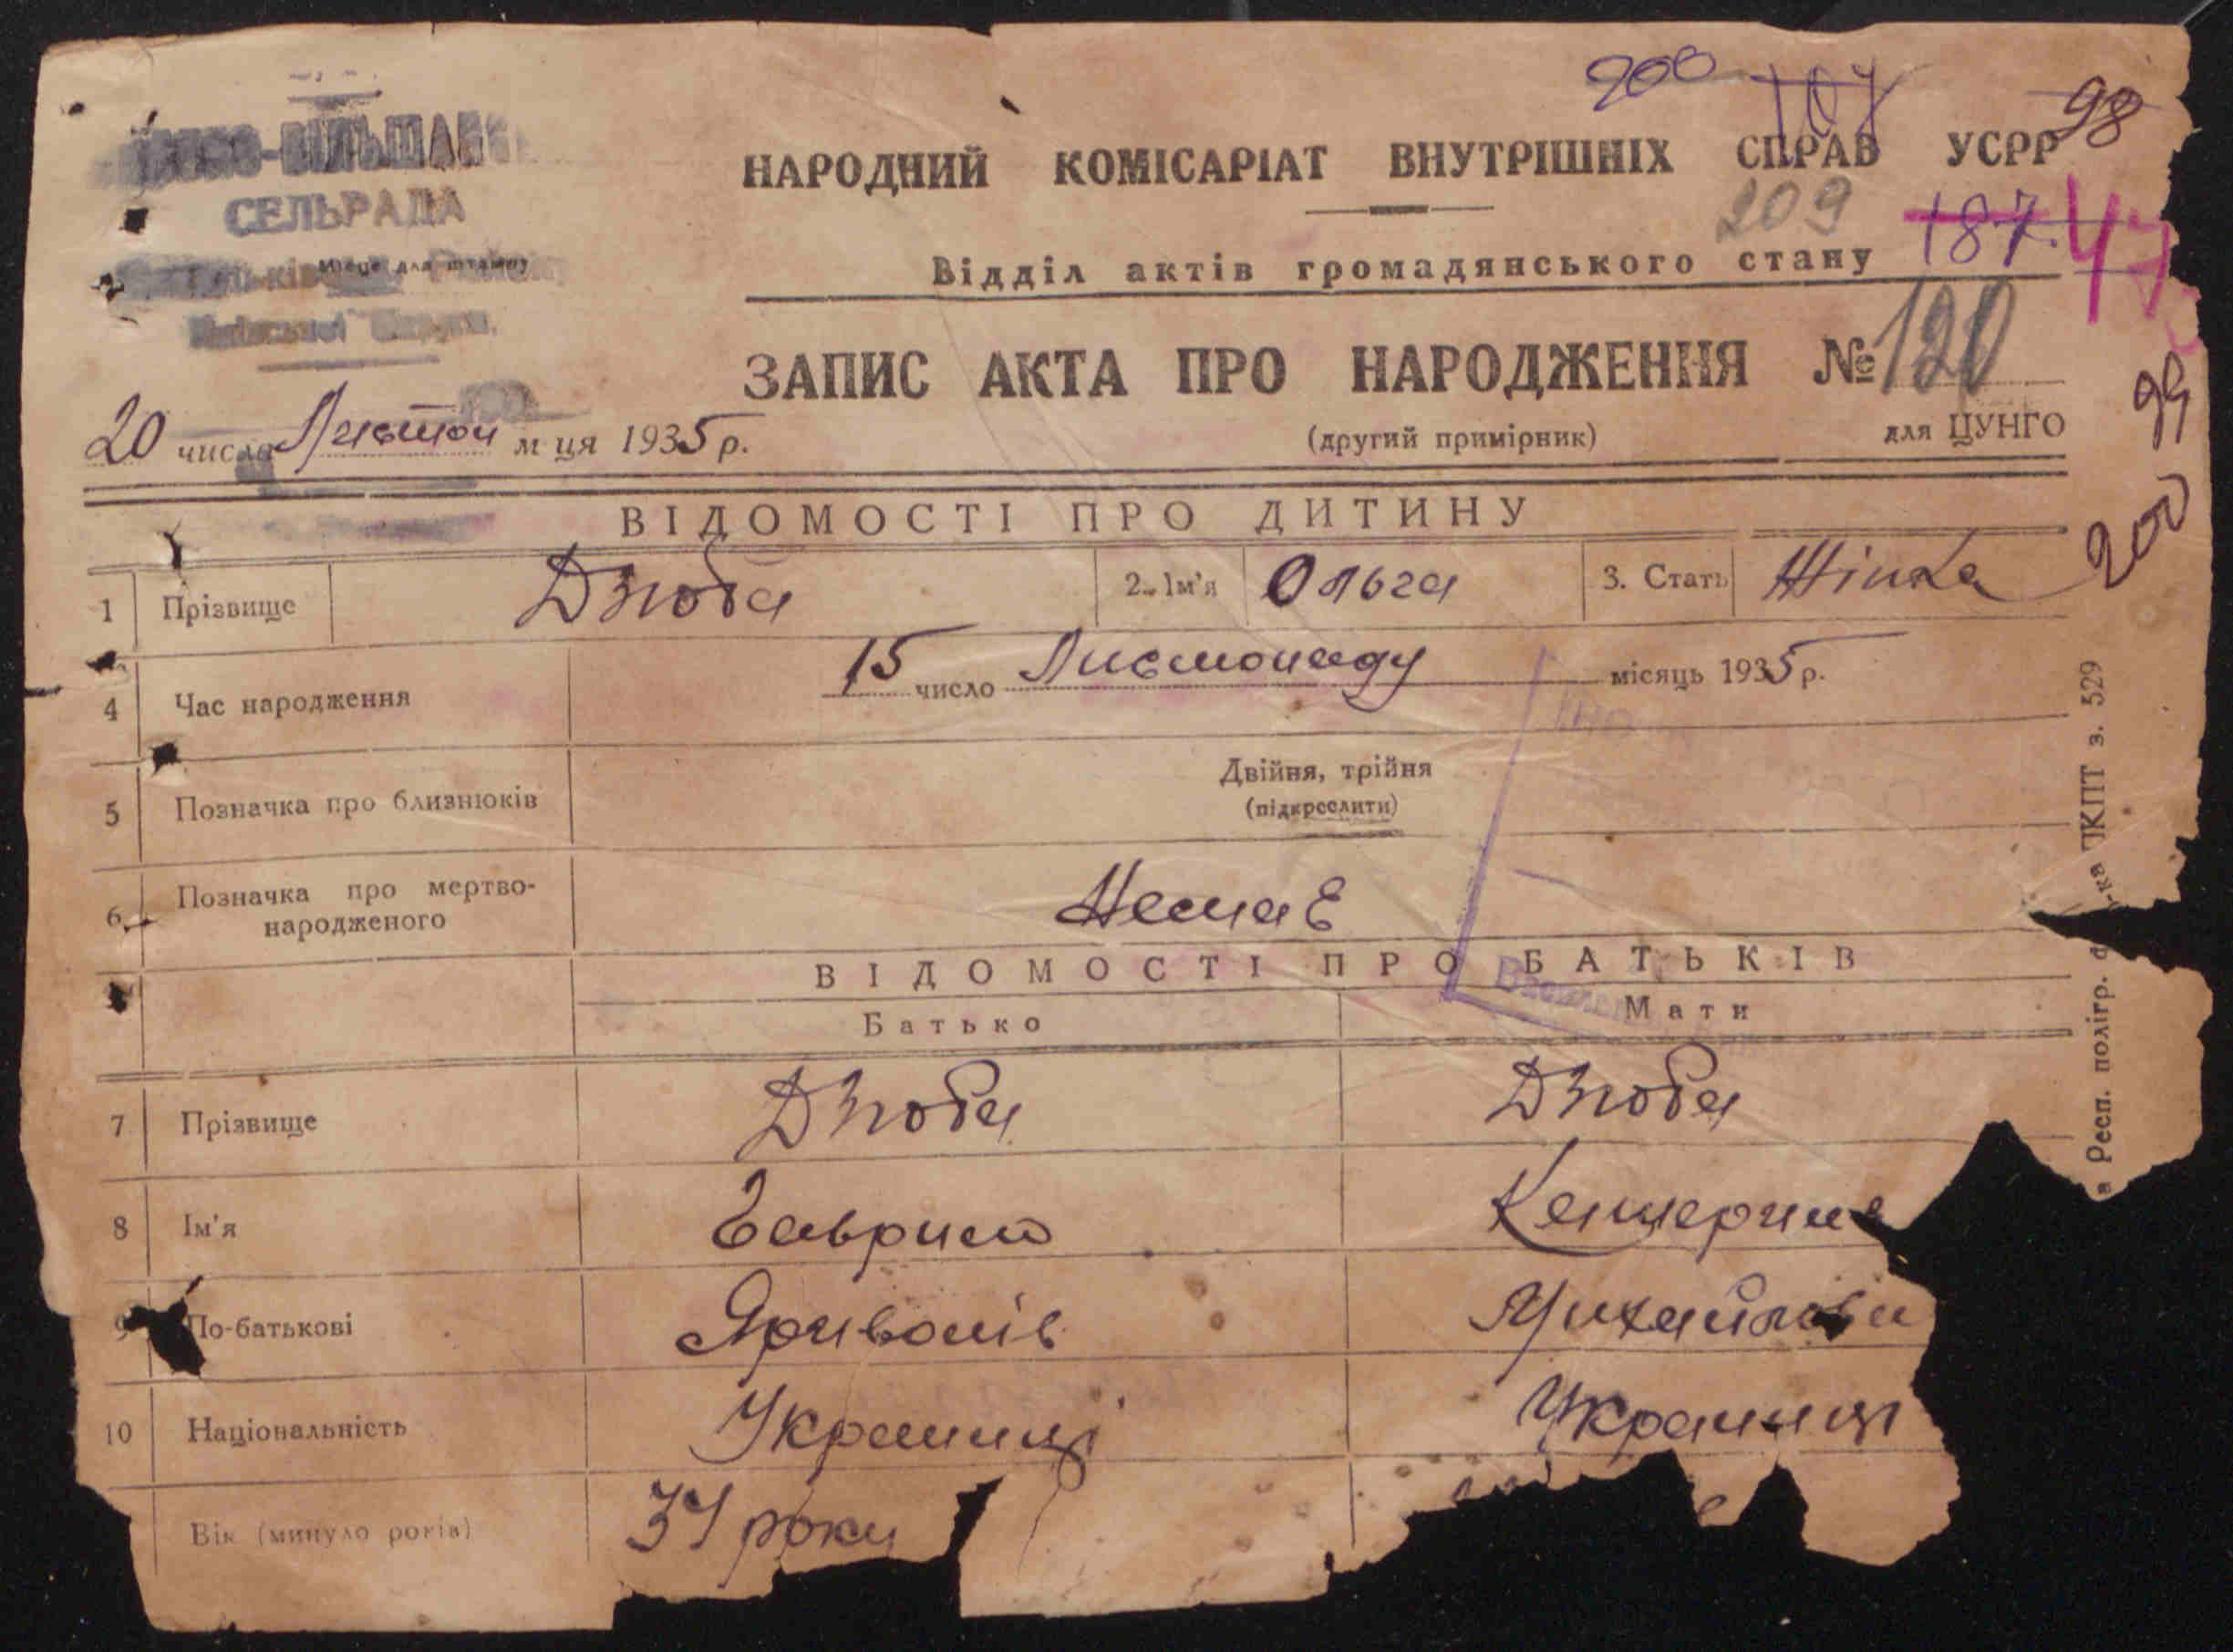 СЕЛЬРАДА
Місце для штампу
200 107 98
НАРОДНИЙ КОМІСАРІАТ ВНУТРІШНІХ СПРАВ УСРР
209 187. 47
Відділ актів громадянського стану
ЗАПИС АКТА ПРО НАРОДЖЕННЯ № 120
(другий примірник) для ЦУНГО
99
200
20 числа Листоп м-ця 1935 р.
ВІДОМОСТІ ПРО ДИТИНУ
1 Прізвище Дзюба 2. Ім'я Ольга 3. Стать Жінка
4 Час народження 15 число Листопаду місяць 1935 р.
5 Позначка про близнюків Двійня, трійня
(підкреслити)
6 Позначка про мертво-
народженого Немає
ВІДОМОСТІ ПРО БАТЬКІВ
Батько Мати
7 Прізвище Дзюба Дзюба
8 Ім'я Гаврило Катерина
9 По-батькові Михайлови
10 Національність Українці Українці
Вік (минуло років) 34 року
Респ. полігр. ф-ка ЈКПТ з. 529